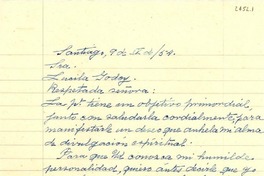 Santiago, 9 de IX de/54.
Sra.
Lucila Godoy.
Respetada señora:
La pte tiene un objetivo primordial,
junto con saludarla cordialmente, para
manifestarle un deseo que anhela mi alma
de divulgación espiritual.
Para que Ud conozca mi humilde
personalidad, quiero antes decirle que yo